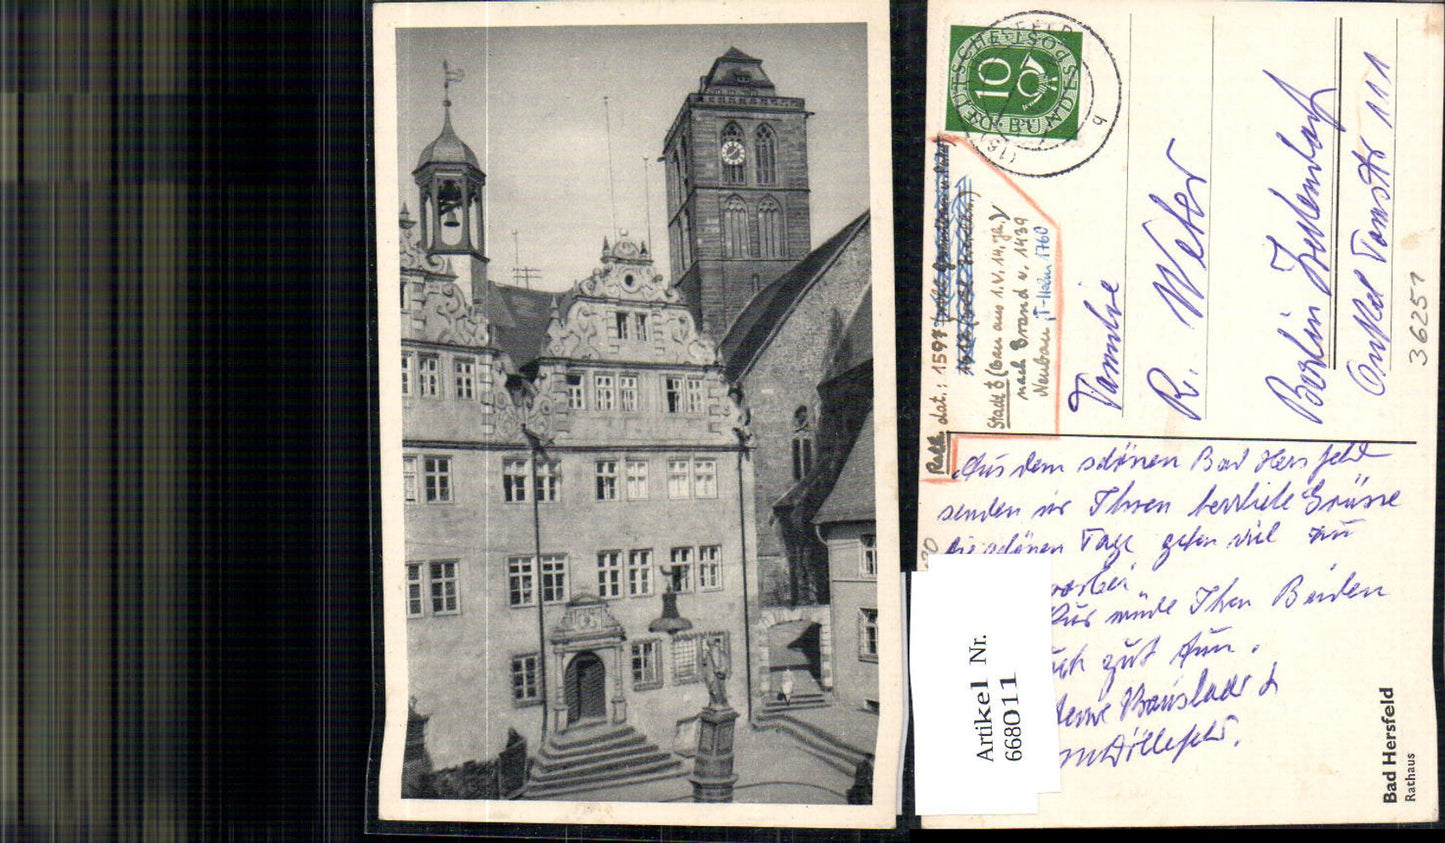 DEUTSCHE BUNDESPOST
10
Familie
R. Weber
Berlin Zehlendorf
Onkel Tomstr 111
36257
Rath. dat.: 1597
Stadt
(Bau aus 1.V. 14. Ja.)
nach Brand v. 1439
Neubau, T-Helm 1760
Aus dem schönen Bad Hersfeld
senden wir Ihnen herzliche Grüsse
die schönen Tage gehen viel zu
vorbei
würde Ihnen Beiden
gut tun.
Artikel Nr.
668011
Bad Hersfeld
Rathaus